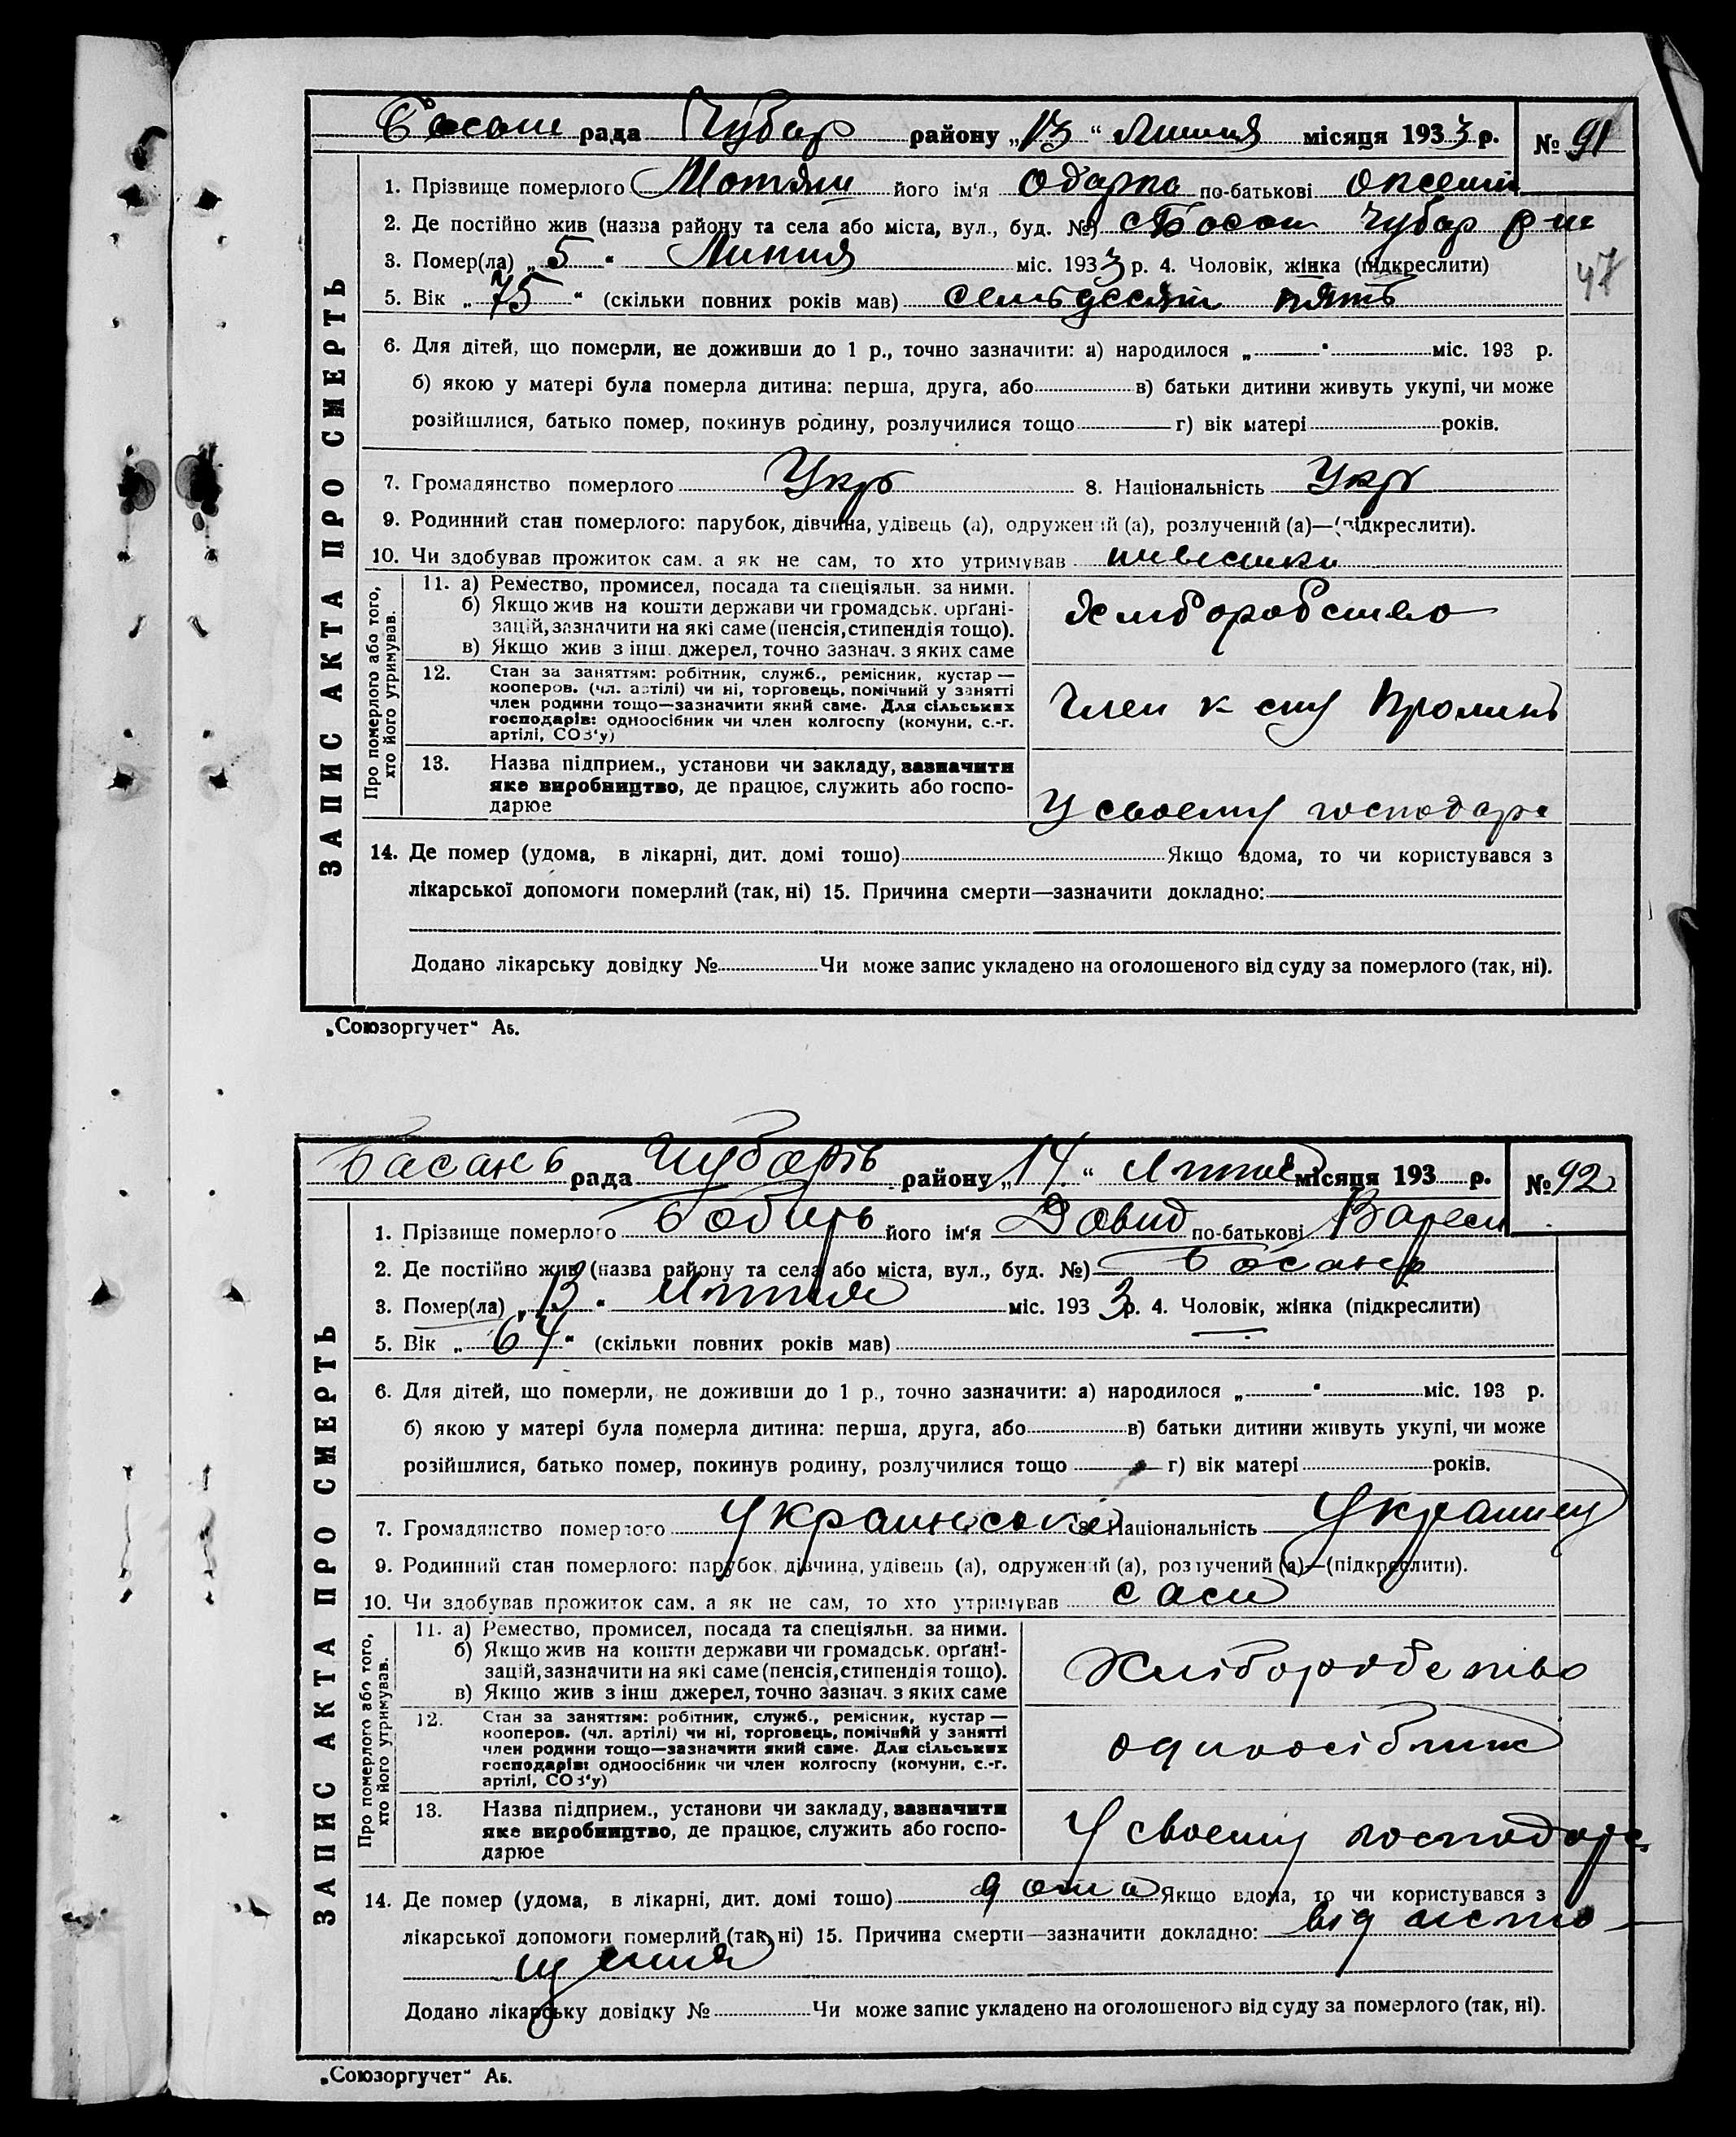 Басань рада Чубар району „13“ Липця місяця 1933 р. № 91
1. Прізвище померлого його ім'я Одарка по-батькові
2. Де постійно жив (назва району та села або міста, вул., буд. №) с Басань Чубар р-ну
3. Помер(ла) „5“ Липня міс. 1933 р. 4. Чоловік, жінка (підкреслити)
47
5. Вік „75“ (скільки повних років мав) семьдесят пять
6. Для дітей, що померли, не доживши до 1 р., точно зазначити: а) народилося „ “ міс. 193 р.
б) якою у матері була померла дитина: перша, друга, або в) батьки дитини живуть укупі, чи може
розійшлися, батько помер, покинув родину, розлучилися тощо г) вік матері років.
7. Громадянство померлого Укр 8. Національність Укр
9. Родинний стан померлого: парубок, дівчина, удівець (а), одружений (а), розлучений (а)—(підкреслити).
10. Чи здобував прожиток сам, а як не сам, то хто утримував
11. а) Ремество, промисел, посада та спеціяльн. за ними.
б) Якщо жив на кошти держави чи громадськ. орґані-
зацій, зазначити на які саме (пенсія, стипендія тощо).
в) Якщо жив з інш. джерел, точно зазнач. з яких саме
Хліборобство
12. Стан за заняттям: робітник, служб., ремісник, кустар —
кооперов. (чл. артілі) чи ні, торговець, помічний у занятті
член родини тощо—зазначити який саме. Для сільських
господарів: одноосібник чи член колгоспу (комуни, с.-г.
артілі, СОЗ'у)
Член к спу Проминь
13. Назва підприєм., установи чи закладу, зазначити
яке виробництво, де працює, служить або госпо-
дарює
У своему господарс
14. Де помер (удома, в лікарні, дит. домі тощо) Якщо вдома, то чи користувався з
лікарської допомоги померлий (так, ні) 15. Причина смерти—зазначити докладно:
Додано лікарську довідку № Чи може запис укладено на оголошеного від суду за померлого (так, ні).
ЗАПИС АКТА ПРО СМЕРТЬ
Про померлого або того,
хто його утримував.
„Союзоргучет“ А5.
Басань рада Чубарів району „14“ Липня місяця 193 р. № 92
1. Прізвище померлого Бобирь його ім'я Довид по-батькові
2. Де постійно жив (назва району та села або міста, вул., буд. №) Басань
3. Помер(ла) „13“ Липня міс. 1933 р. 4. Чоловік, жінка (підкреслити)
5. Вік „64“ (скільки повних років мав)
6. Для дітей, що померли, не доживши до 1 р., точно зазначити: а) народилося „ “ міс. 193 р.
б) якою у матері була померла дитина: перша, друга, або в) батьки дитини живуть укупі, чи може
розійшлися, батько помер, покинув родину, розлучилися тощо г) вік матері років.
7. Громадянство померлого 8. Національність
9. Родинний стан померлого: парубок, дівчина, удівець (а), одружений (а), розлучений (а)—(підкреслити).
10. Чи здобував прожиток сам, а як не сам, то хто утримував сам
11. а) Ремество, промисел, посада та спеціяльн. за ними.
б) Якщо жив на кошти держави чи громадськ. орґані-
зацій, зазначити на які саме (пенсія, стипендія тощо).
в) Якщо жив з інш джерел, точно зазнач. з яких саме
Хліборобство
12. Стан за заняттям: робітник, служб., ремісник, кустар —
кооперов. (чл. артілі) чи ні, торговець, помічний у занятті
член родини тощо—зазначити який саме. Для сільських
господарів: одноосібник чи член колгоспу (комуни, с.-г.
артілі, СОЗ'у)
одноосібник
13. Назва підприєм., установи чи закладу, зазначити
яке виробництво, де працює, служить або госпо-
дарює
У своему господарс
14. Де помер (удома, в лікарні, дит. домі тощо) дома Якщо вдома, то чи користувався з
лікарської допомоги померлий (так, ні) 15. Причина смерти—зазначити докладно: від исто-
щения
Додано лікарську довідку № Чи може запис укладено на оголошеного від суду за померлого (так, ні).
ЗАПИС АКТА ПРО СМЕРТЬ
Про померлого або того,
хто його утримував.
„Союзоргучет“ А5.